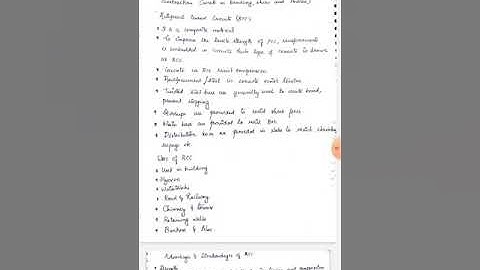 Reinforced Cement Concrete (RCC):
• It is a composite material
• To improve the tensile strength of PCC, reinforcement
is embedded in concrete. Such type of concrete is known
as RCC.
• Concrete in RCC resist compression
• Reinforcement / Steel in concrete resist tension
• Twisted steel bars are generally used to create bond,
prevent slipping
• Stirrups are provided to resist shear force
• Main bars are provided to resist
• Distribution bars are provided in slabs to resist shrinkage
etc.
Uses of RCC
• Used in building
•
• Water tanks
• Road & Railway
• Chimney & tower
• Retaining walls
• Bunkers & silos
Advantages & Disadvantages of RCC